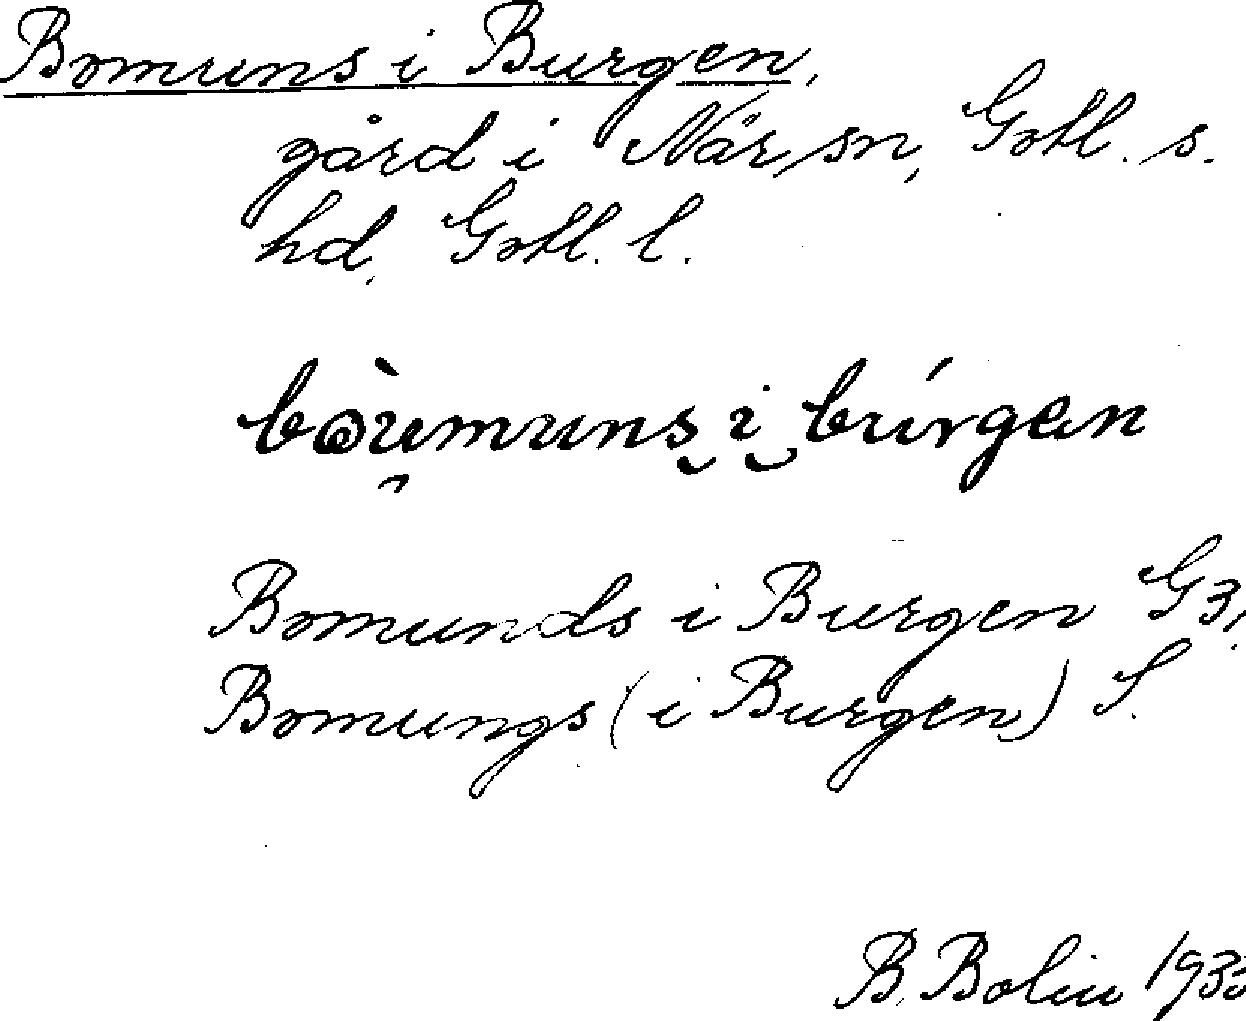 Bomuns i Burgen,
gård i När sn, Gotl. s.
hd, Gotl. l.
bòumuns i búrgen
Bomunds i Burgen G3,
Bomungs (i Burgen) S.
B. Bolin 1933